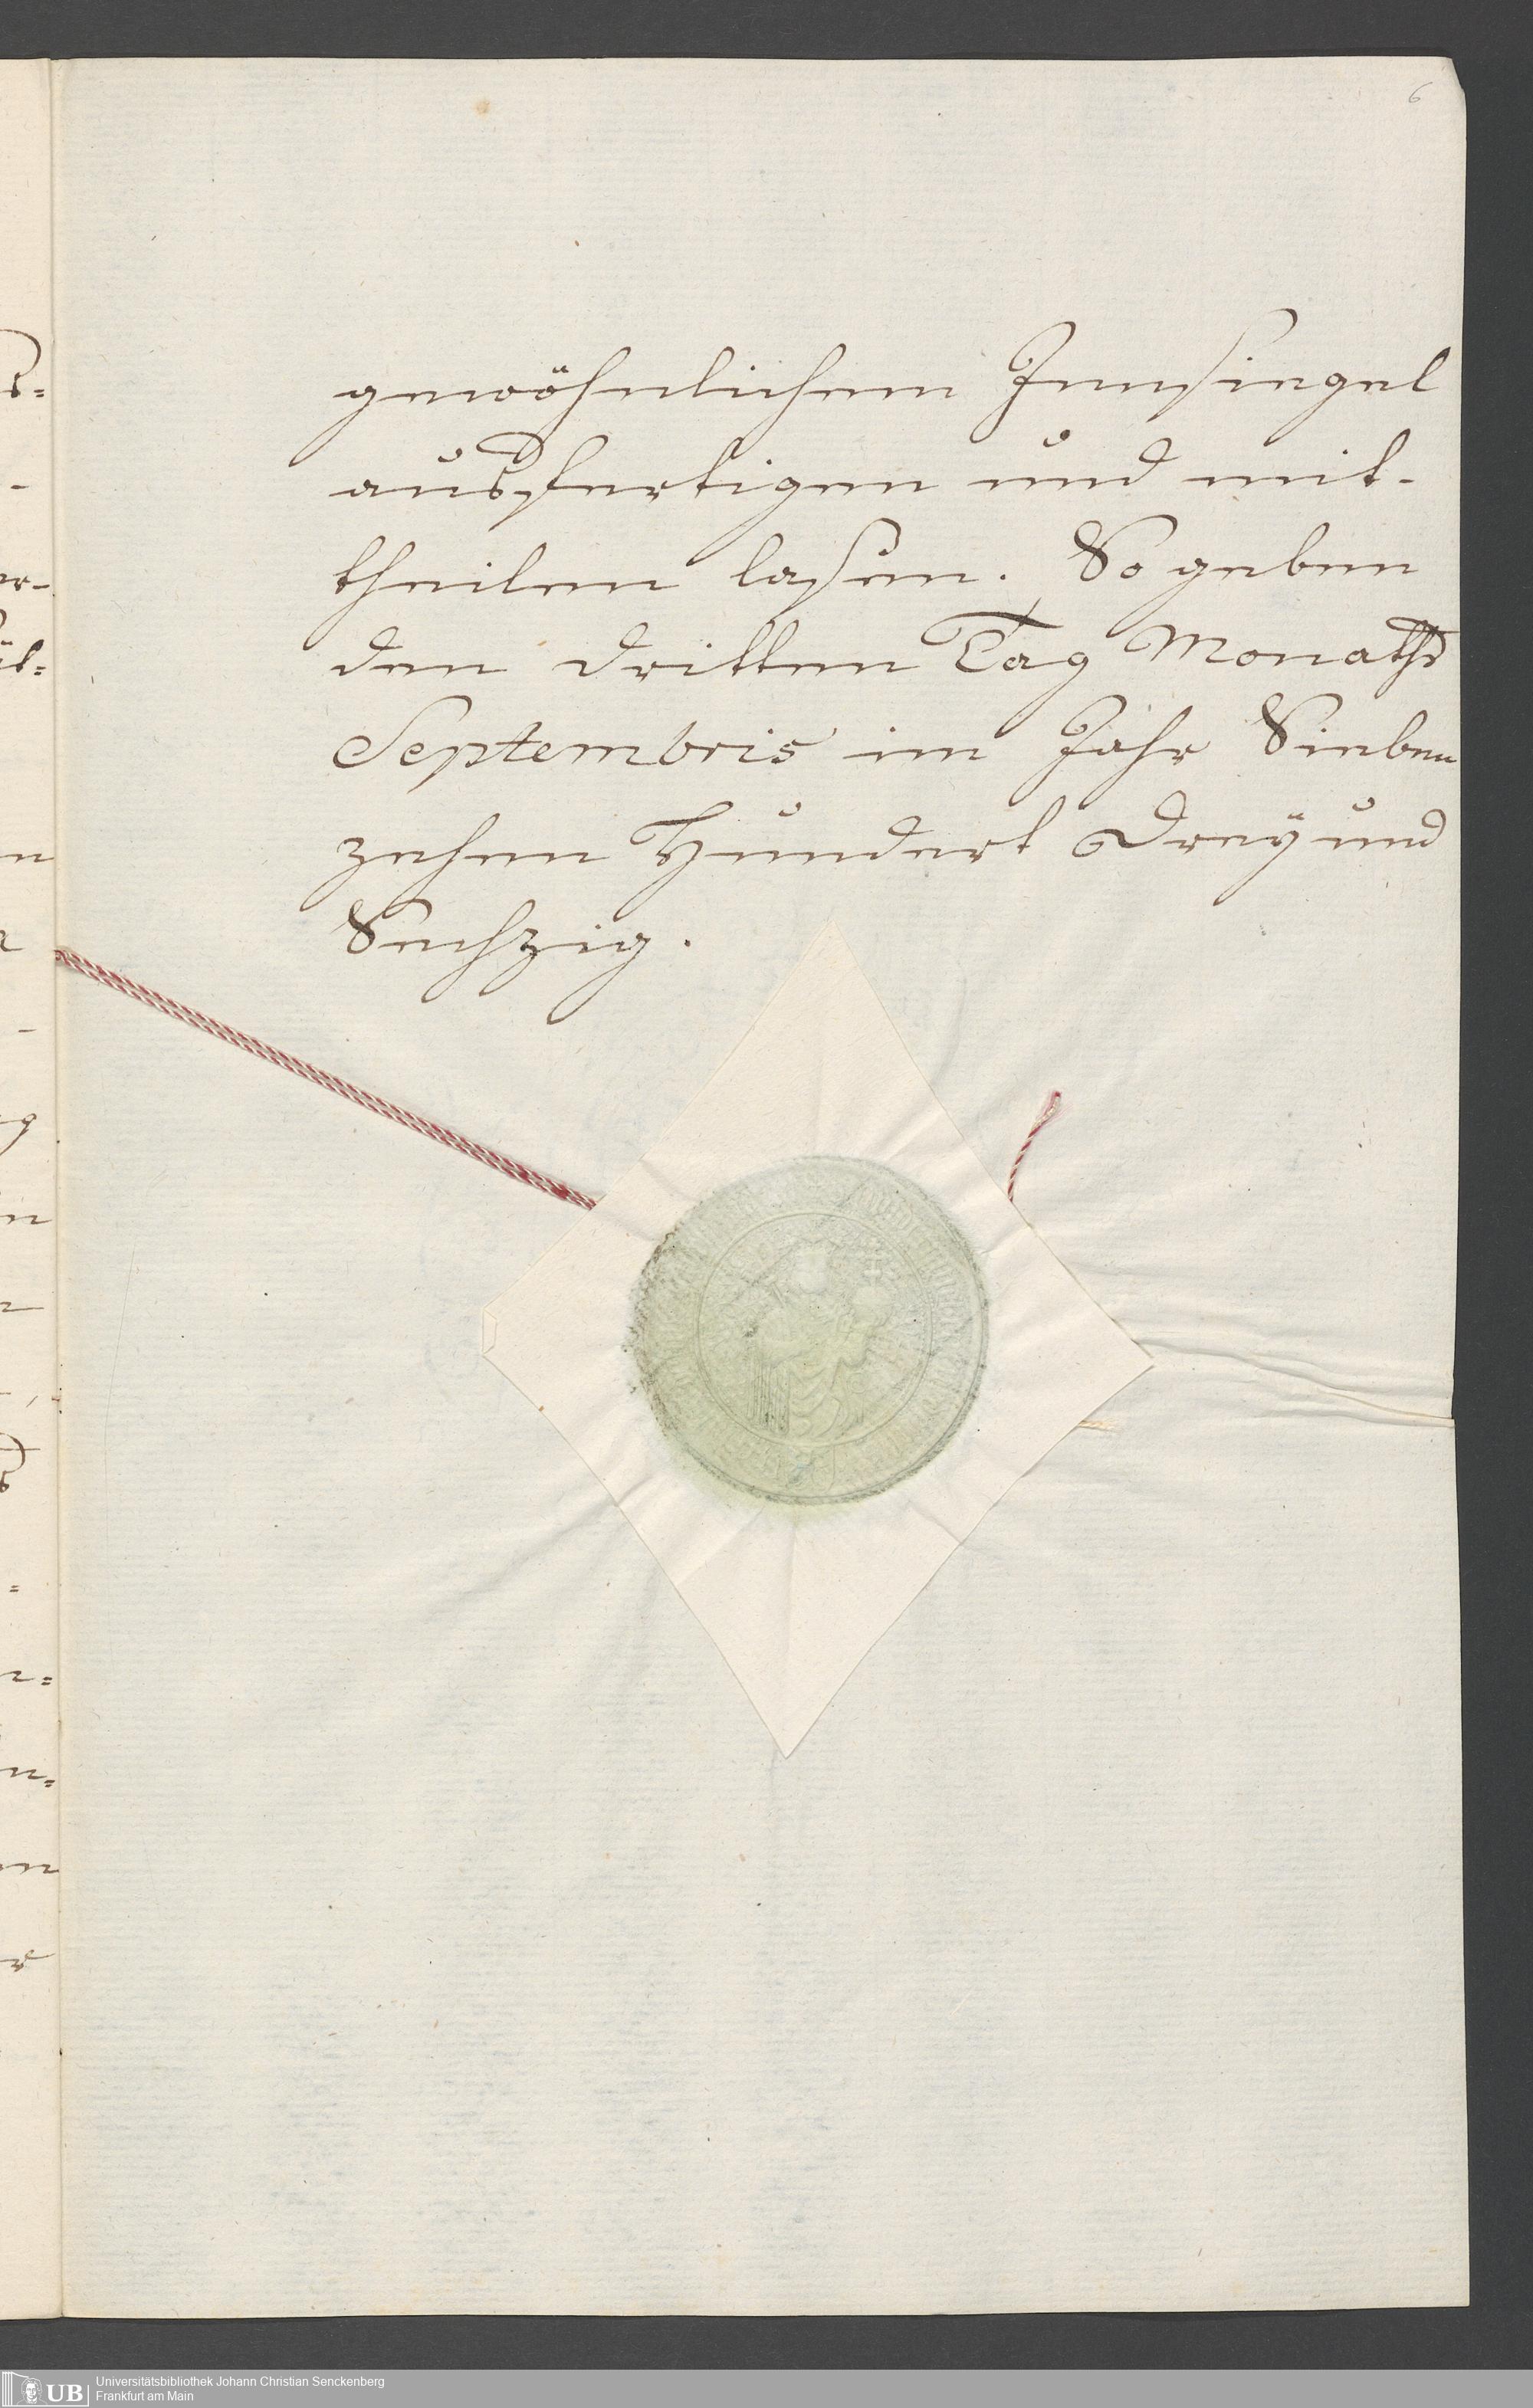 6
gewöhnlichem Innsiegel
ausfertigen und mit-
theilen laßen. So geben
den dritten Tag Monaths
Septembris im Jahr Sieben
zehen Hundert Drey und
Sechzig.
UB
Universitätsbibliothek Johann Christian Senckenberg
Frankfurt am Main